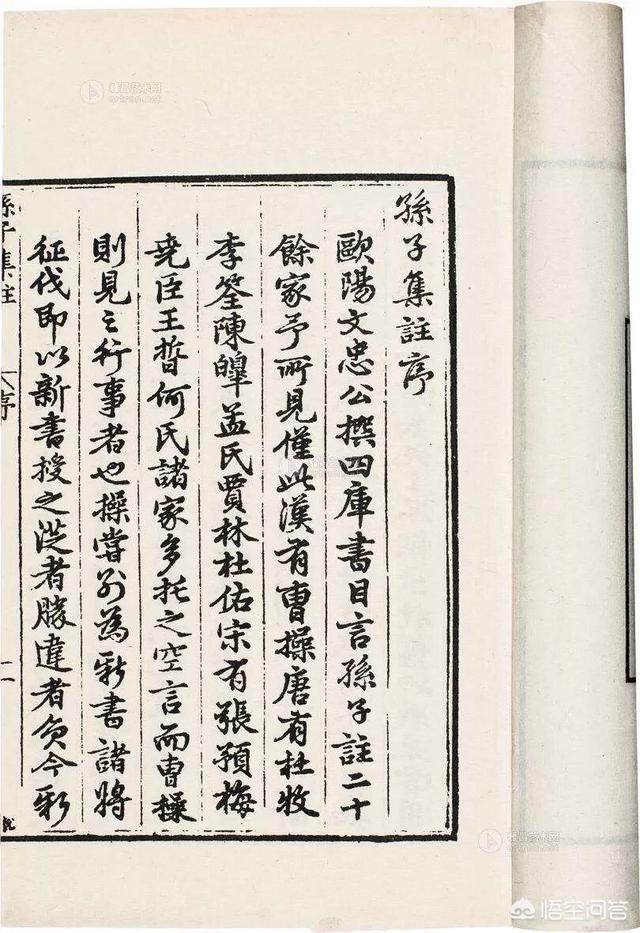 孫子集註序
歐陽文忠公撰四庫書目言孫子註二十
餘家予所見僅此漢有曹操唐有杜牧
李筌陳皥孟氏賈林杜佑宋有張預梅
堯臣王晳何氏諸家多托之空言而曹操
則見之行事者也操嘗別為新書諸將
征伐即以新書授之從者勝違者負今新
孫子集註
序
一
雅昌艺术网
artron.net
悟空问答